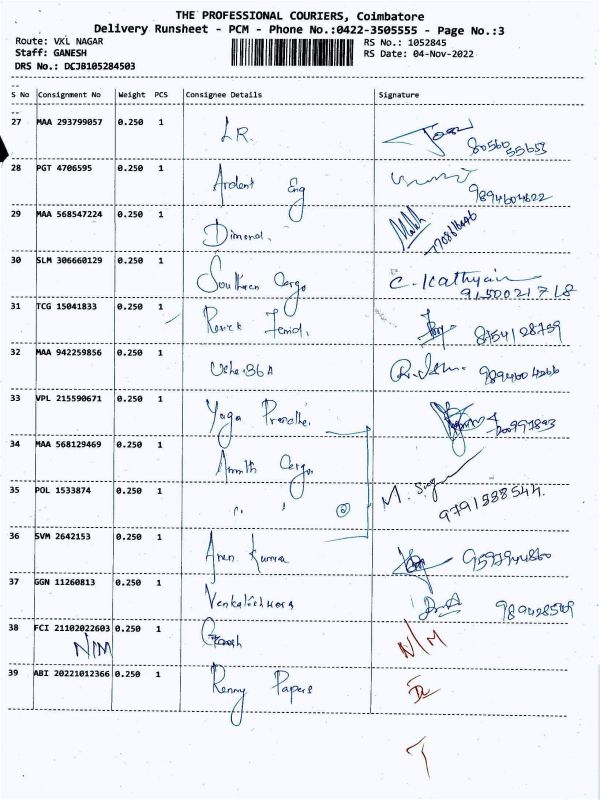 THE PROFESSIONAL COURIERS, Coimbatore
Delivery Runsheet - PCM - Phone No.:0422-3505555 - Page No.:3
Route: VKL NAGAR RS No.: 1052845
Staff: GANESH RS Date: 04-Nov-2022
DRS No.: DCJB105284503
S No Consignment No Weight PCS Consignee Details Signature
27 MAA 293799057 0.250 1 LR. 80560 55653
28 PGT 4706595 0.250 1 Ardent Eng 9894604622
29 MAA 568547224 0.250 1 Dimond.
30 SLM 306660129 0.250 1 Southern Cargo 9150021718
31 TCG 15041833 0.250 1 8754128759
32 MAA 942259856 0.250 1
33 VPL 215590671 0.250 1 Yoga
34 MAA 568129469 0.250 1 Cargo
35 POL 1533874 0.250 1 " " 9791588544.
36 SVM 2642153 0.250 1 Kumar
37 GGN 11260813 0.250 1
38 FCI 21102022603 0.250 1 Ganesh N/M
N/M
39 ABI 20221012366 0.250 1 Renny Papers